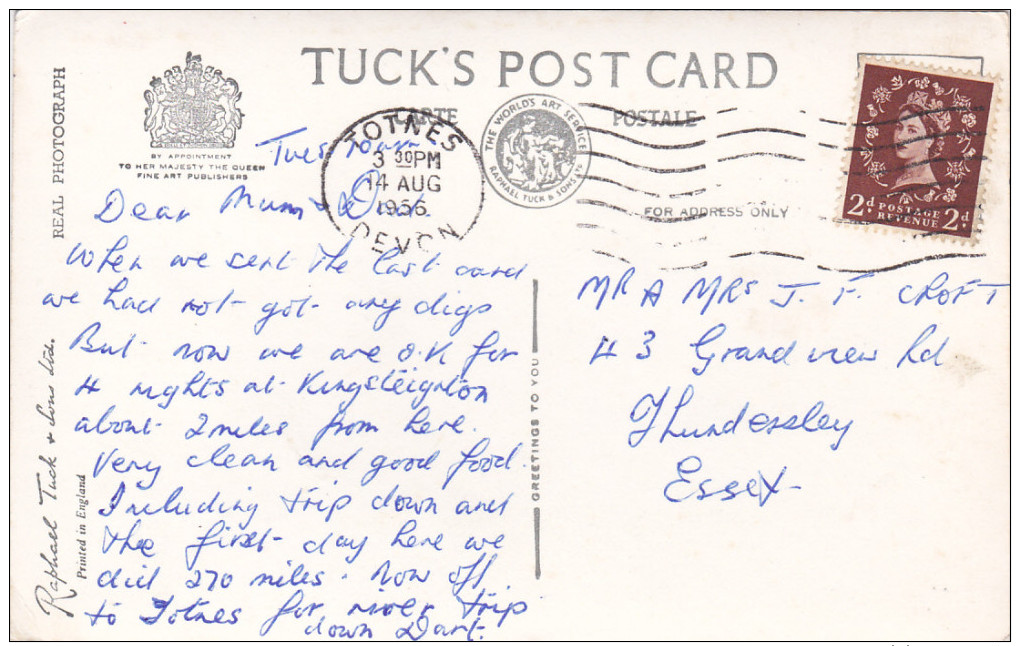 TUCK'S POST CARD
CARTE POSTALE
REAL PHOTOGRAPH
BY APPOINTMENT
TO HER MAJESTY THE QUEEN
FINE ART PUBLISHERS
THE WORLD'S ART SERVICE
RAPHAEL TUCK & SONS LTD
TOTNES
3 30PM
14 AUG
1956
DEVON
FOR ADDRESS ONLY
2d POSTAGE REVENUE 2d
Tues
Dear Mum & Dad
When we sent the last card
we had not got any digs
But now we are O.K for
4 nights at Kingsteignton
about 2 miles from here.
Very clean and good food.
Including trip down and
the first day here we
did 270 miles. Now off
to Totnes for river trip
down Dart.
GREETINGS TO YOU
MR & MRS J. F. CROFT
43 Grandview Rd
Thundersley
Essex
Raphael Tuck & Sons Ltd.
Printed in England